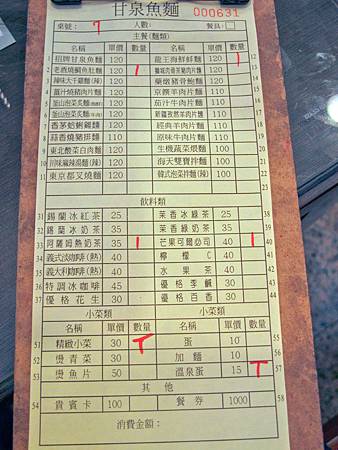 甘泉魚麵
000631
桌號： 7 人數： 餐具：□
主餐(麵類)
名稱 單價 數量 名稱 單價 數量
1 招牌甘泉魚麵 120 龍王海鮮鮮麵 120 1 12
2 老酒燒鯛魚肚麵 120 1 120
辣味大千雞麵(辣) 120 藥燉豬骨鮑麵 120
薑汁燒豬肉片麵 120 京饌羊肉片麵 120
釜山泡菜 120 茄汁牛肉片麵 120
釜山泡菜羊 120 新疆孜然羊肉片麵 120
7 香茅蛤蜊雞麵 120 經典羊肉片麵 120
8 蒜香燒豬排麵 120 原味牛肉片麵 120
9 東北酸菜白肉麵 120 生機蔬菜煨麵 100
10 川味麻辣湯麵(辣) 120 海天雙寶拌麵 100
11 東京都叉燒麵 120 韓式泡菜拌麵(辣) 100
飲料類
31 錫蘭冰紅茶 25 茉香冰綠茶 25 38
32 錫蘭冰奶茶 35 茉香綠奶茶 35 39
33 阿薩姆熱奶茶 35 1 芒果可爾必司 40 1 40
34 義式淡咖啡(熱) 40 檸檬C 40 41
35 義大利咖啡(熱) 40 水果茶 40 42
36 特調冰咖啡 45 優格李鹹 30 43
37 優格花生 30 優格百香 30 44
小菜類 小菜類
名稱 單價 數量 名稱 單價 數量
51 精緻小菜 30 T 蛋 10 55
52 燙青菜 30 加麵 10 56
53 燙魚片 50 溫泉蛋 15 T 57
其他
54 貴賓卡 100 餐券 1000 58
消費金額：